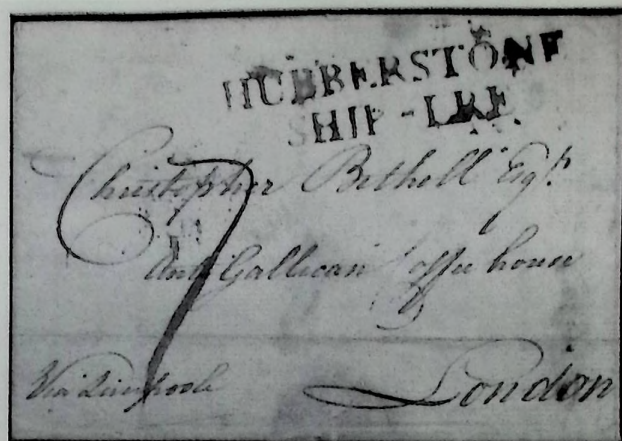 HUBBERSTONE
SHIP-LRE
Christopher Bethell Esqr.
Anti Gallican Coffee house
7
Via Liverpoole
London